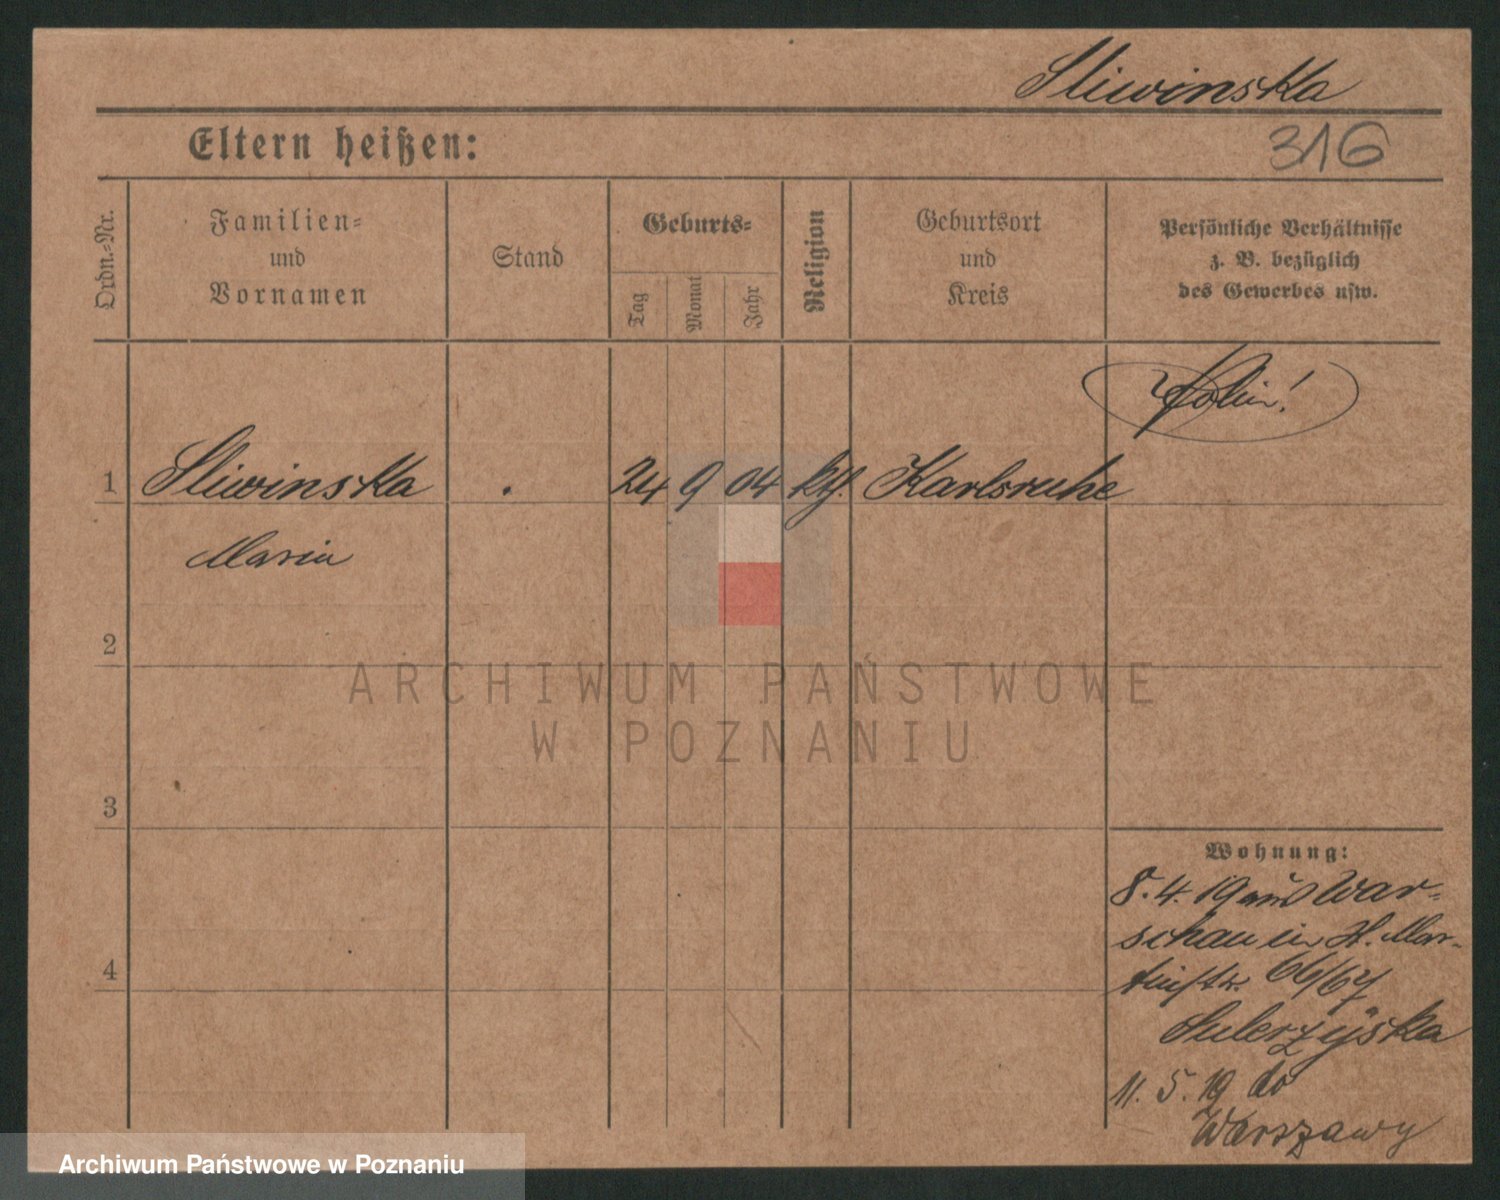 Sliwinska
Eltern heißen:
316
Ordn.-Nr.
Familien-
und
Vornamen
Stand
Geburts-
Tag
Monat
Jahr
Religion
Geburtsort
und
Kreis
Persönliche Verhältnisse
z. B. bezüglich
des Gewerbes usw.
1
Sliwinska
.
24
9
04
kth.
Karlsruhe
Maria
2
ARCHIWUM PAŃSTWOWE
W POZNANIU
3
Wohnung:
8.4.19 aus War-
schau in H. Mar-
tinstr. 66/67
Sulerzyska
4
11.5.19 do
Warszawy
Archiwum Państwowe w Poznaniu